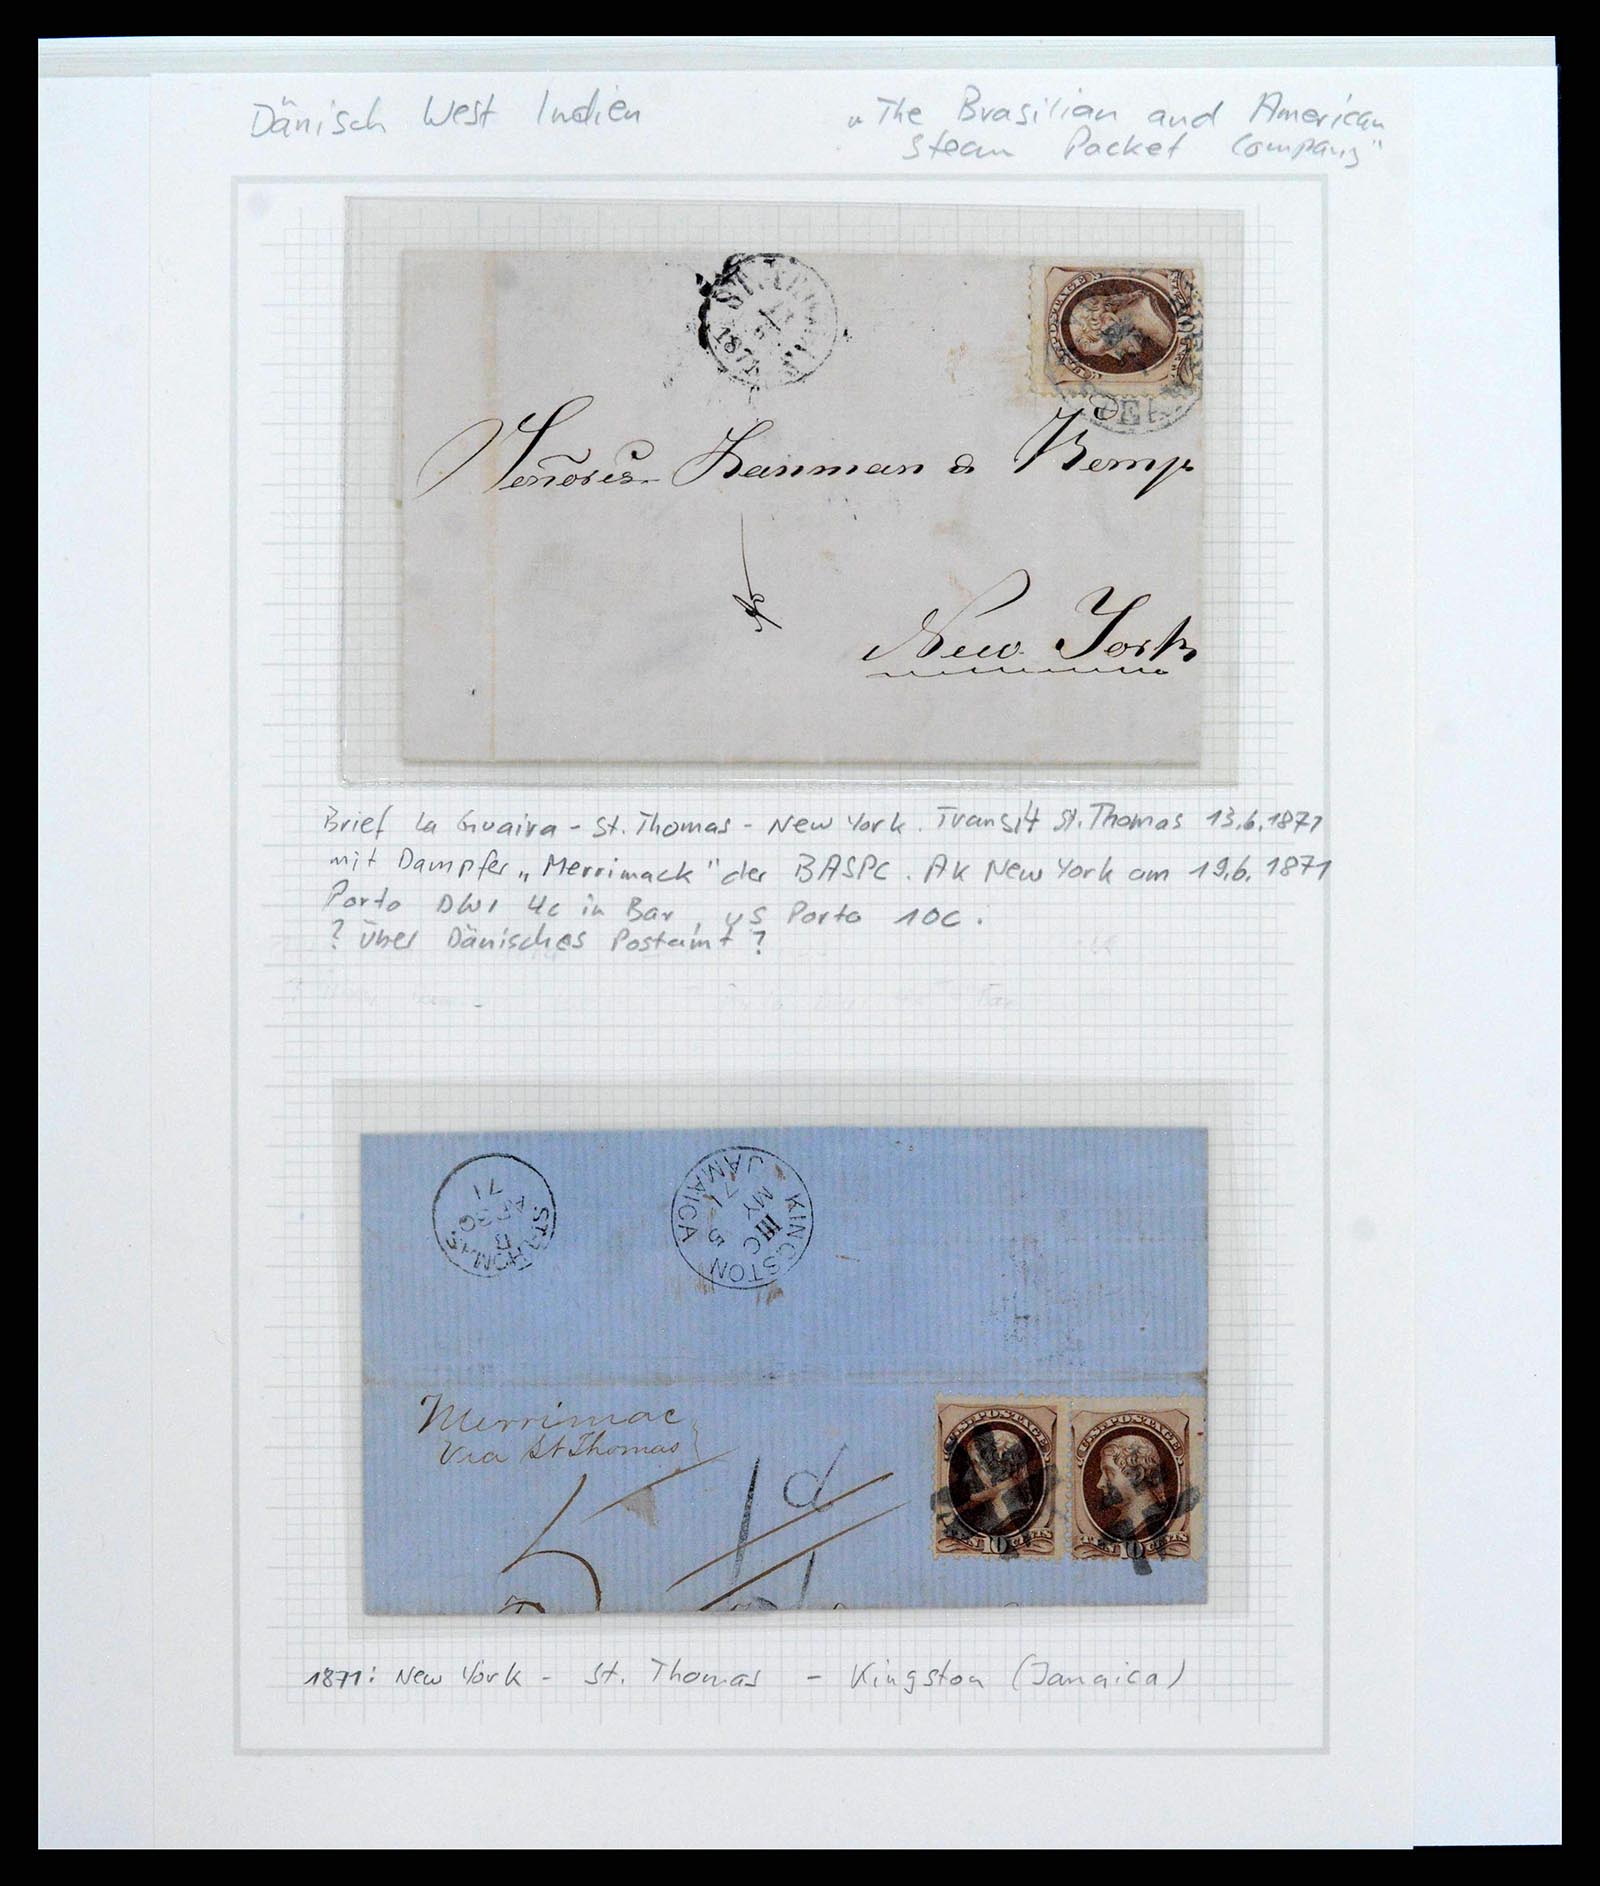 Dänisch West Indien
„The Brasilian and American
Steam Packet Company"
ST. THOMAS
187
U.S. POSTAGE
10
Señores Lanman & Kemp
New York
Brief La Guaira - St. Thomas - New York. Transit St. Thomas 13.6.1871
mit Dampfer „Merrimack" der BASPC. AK New York am 19.6.1871
Porto DWI 4c in Bar, US Porto 10c.
? über Dänisches Postamt ?
ST. THOMAS
B
AP 30
71
KINGSTON
JAMAICA
C
MY 5
71
Merrimac
Via St Thomas
5
1d
U.S. POSTAGE
TEN 10 CENTS
U.S. POSTAGE
TEN 10 CENTS
1871: New York - St. Thomas - Kingston (Jamaica)